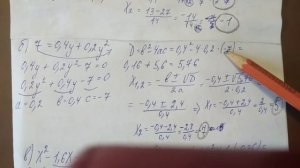 x₂ = (13-27)/14 = -14/14 = -1
б) 7 = 0,4y + 0,2y²
0,4y + 0,2y² - 7 = 0
0,2y² + 0,4y - 7 = 0
a = 0,2 b = 0,4 c = -7
D = b² - 4ac = 0,4² - 4·0,2·(-7)
0,16 + 5,6 = 5,76
x₁,₂ = (-b ± √D)/2a = (-0,4 ± √5,76)/
= (-0,4 ± 2,4)/0,4 ⇒ x₁ = (-0,4+2,4)/0,4 = 2/0,4
x₂ = (-0,4-2,4)/0,4 = -2,8/0,4
в) x² - 1,6x